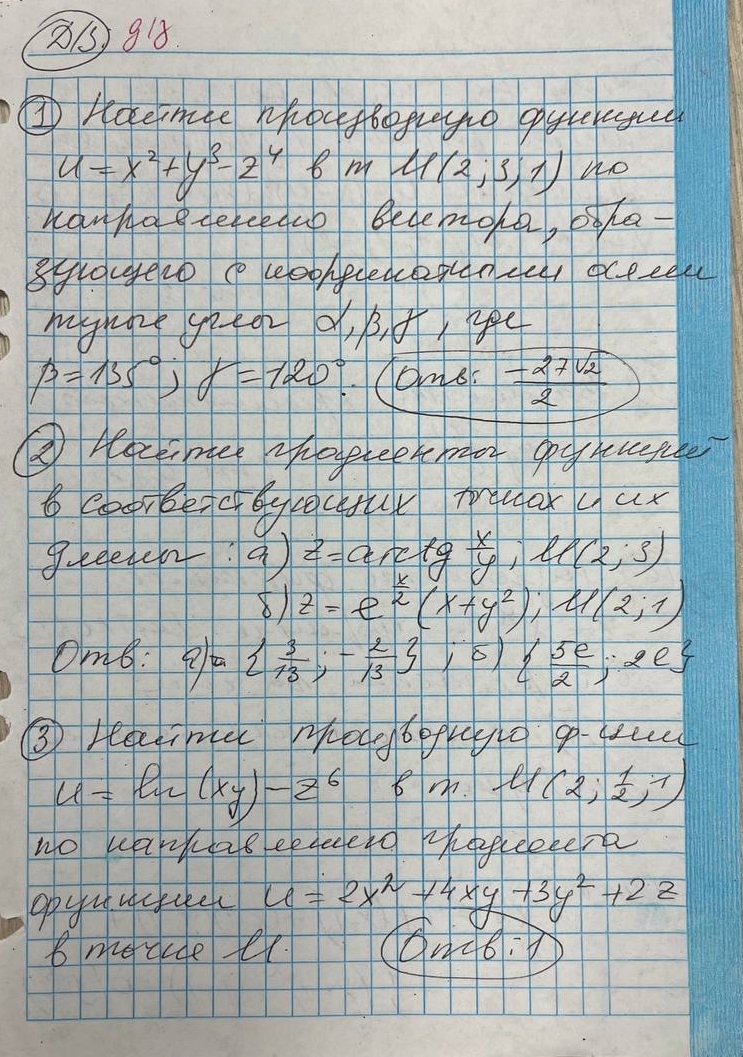 Д/З. 9/8.
① Найти производную функции
u = x² + y³ - z⁴ в т M(2; 3; 1) по
направлению вектора, обра-
зующего с координатными осями
тупые углы α, β, γ, где
β = 135°; γ = 120°. Отв: -27√2/2
② Найти градиенты функций
в соответствующих точках и их
длины: а) z = arctg x/y; M(2; 3)
б) z = e^(x/2) (x + y²); M(2; 1)
Отв: а) {3/13; -2/13}; б) {5e/2; 2e}
③ Найти производную ф-ции
u = ln(xy) - z⁶ в т. M(2; 1/2; 1)
по направлению градиента
функции u = 2x² + 4xy + 3y² + 2z
в точке M. Отв: 1